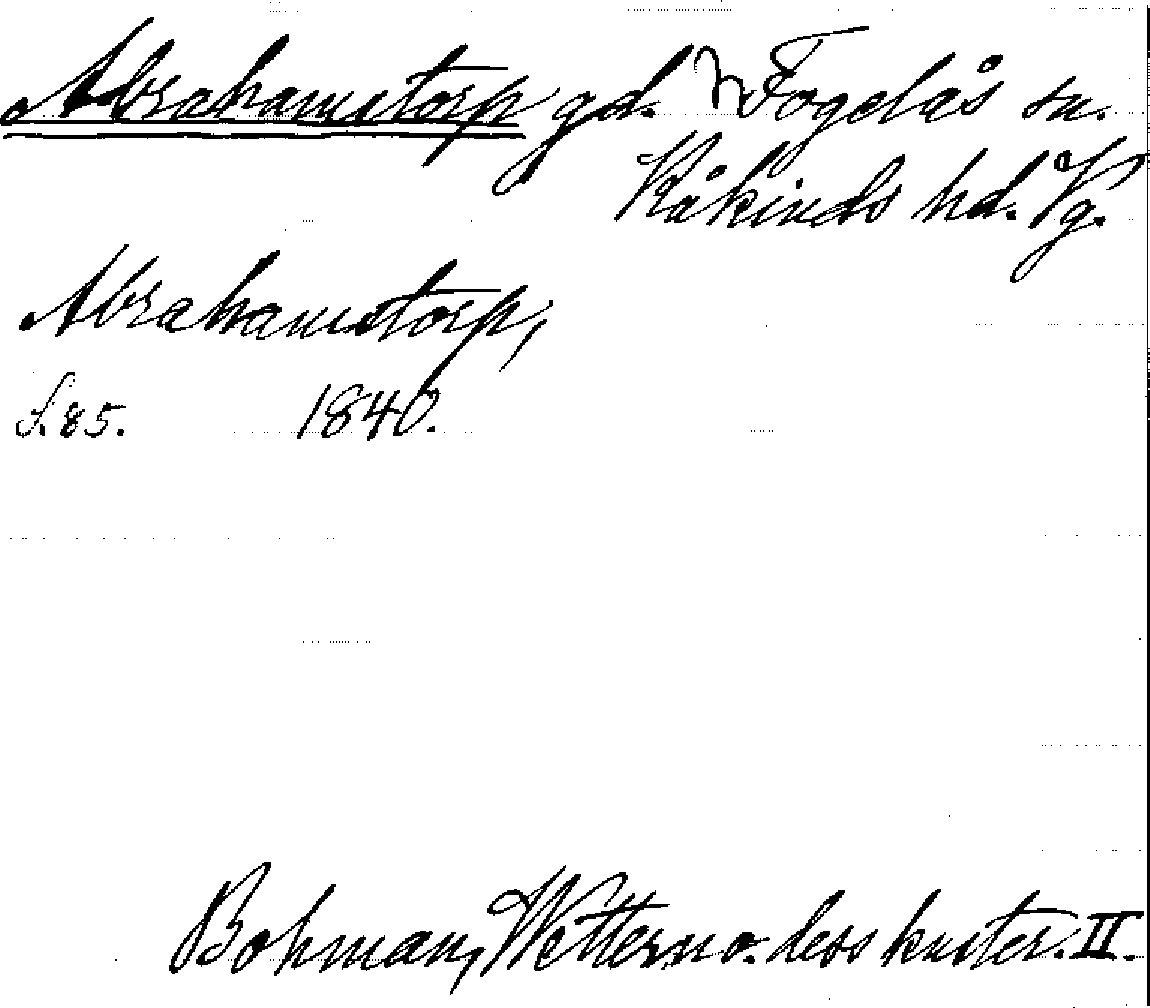 Abrahamstorp gd. N Fogelås sn.
Kåkinds hd. Vg.
Abrahamstorp,
S. 85. 1840.
Bohman, Wettern o. dess kuster. II.